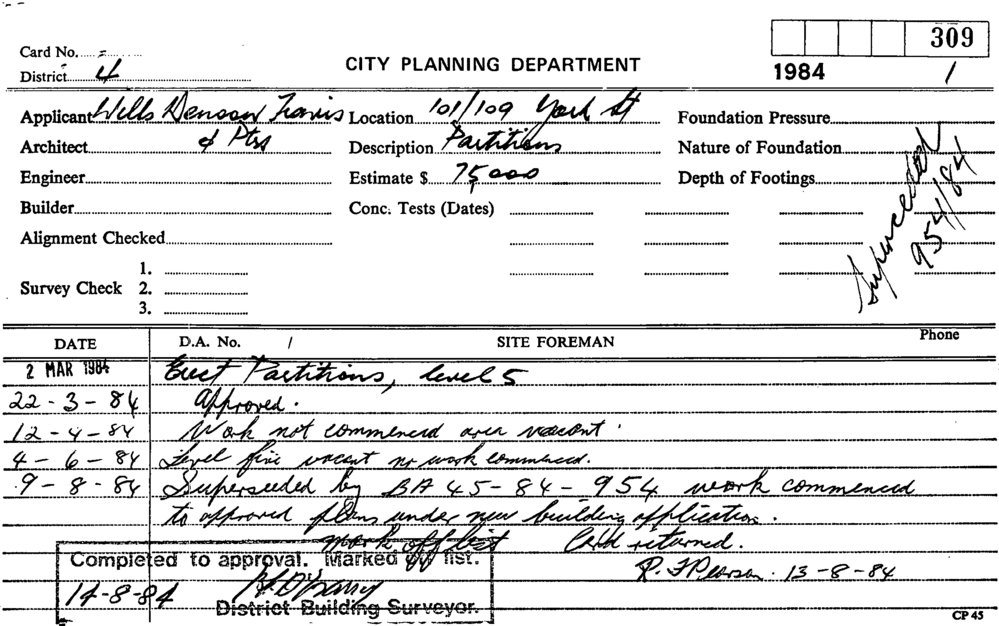 309
Card No.
CITY PLANNING DEPARTMENT
1984 /
District 4
Applicant Wells Denson Travis Location 101/109 York St Foundation Pressure
Architect & Ptrs Description Partitions Nature of Foundation
Engineer Estimate $ 75000 Depth of Footings
Superceeded 954/84
Builder Conc. Tests (Dates)
Alignment Checked
1.
Survey Check 2.
3.
DATE D.A. No. / SITE FOREMAN Phone
2 MAR 1984 Erect Partitions, level 5
22-3-84 Approved.
12-4-84 Work not commenced area vacant.
4-6-84 Level five vacant no work commenced.
9-8-84 Superseeded by BA 45-84-954 work commenced
to approved plans under new building application.
mark off list Card returned.
Completed to approval. Marked off list.
R. F Pearson. 13-8-84
14-8-84
District Building Surveyor.
CP 45